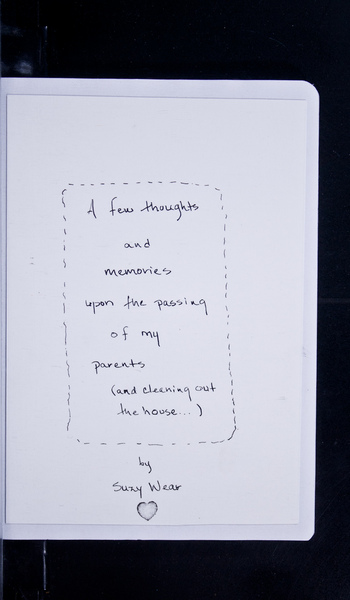 A few thoughts
and
memories
upon the passing
of my
parents
(and cleening out
the house...)
by
Suzy Wear